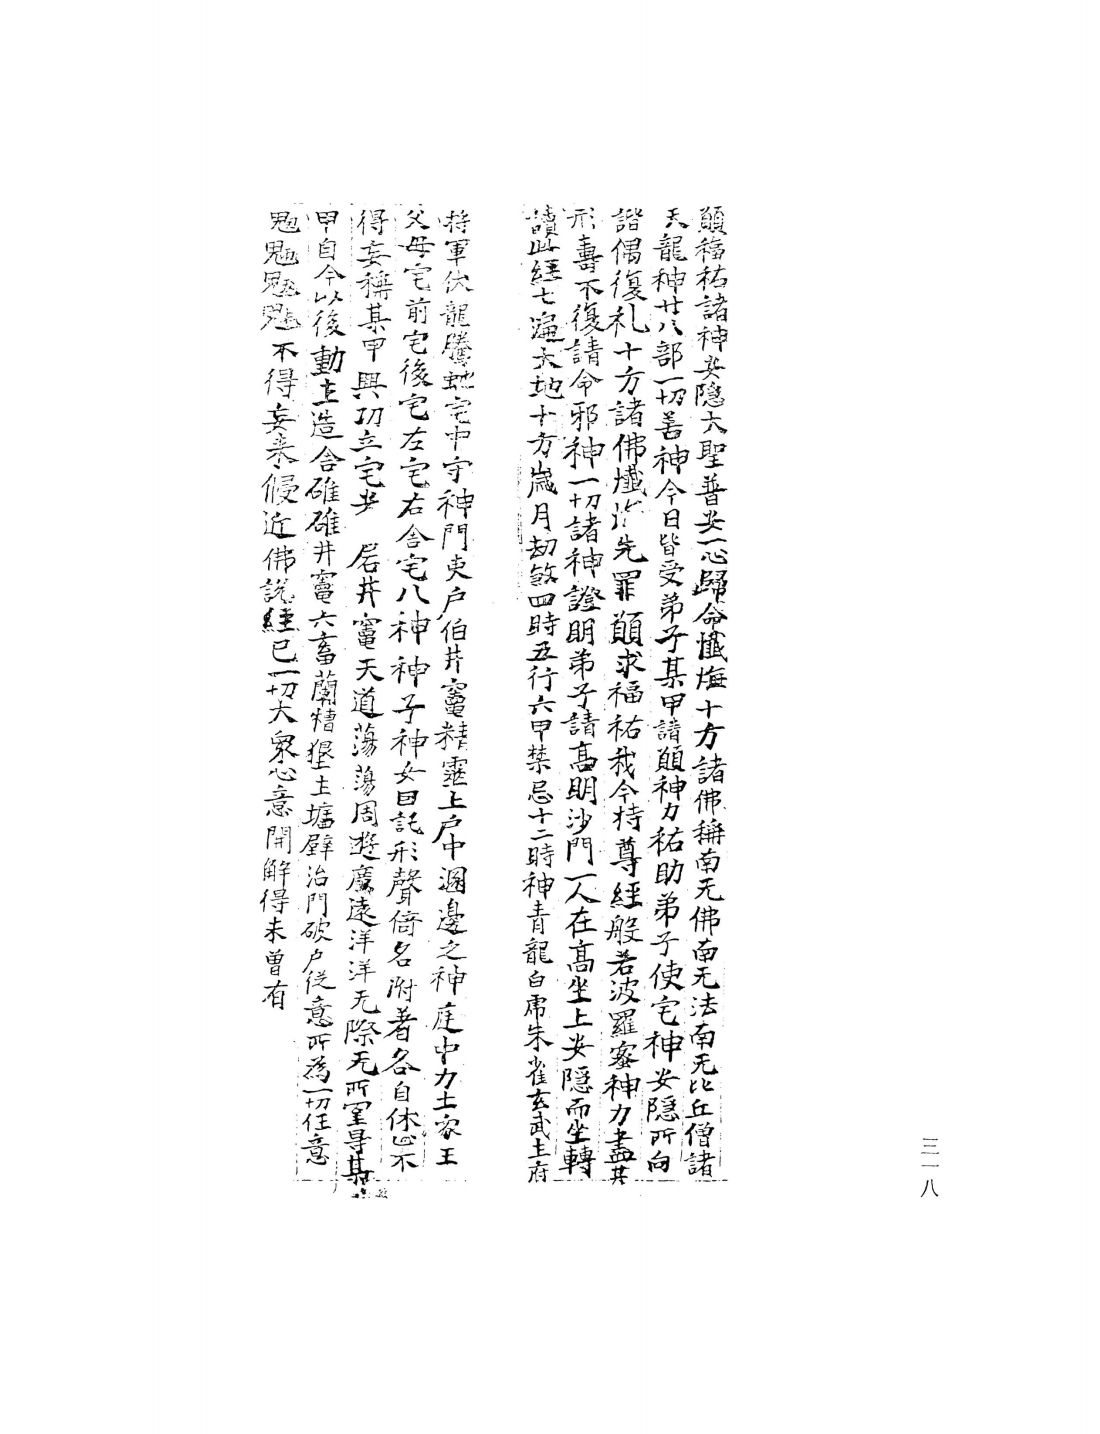 願福祐諸神安隱大聖普安一心歸命懺悔十方諸佛稱南无佛南无法南无比丘僧諸
天龍神廿八部一切善神今日皆受弟子某甲請願神力祐助弟子使宅神安隱所向
諧偶復礼十方諸佛懺先罪願求福祐我今持尊經般若波羅蜜神力盡其
形壽不復請命邪神一切諸神證明弟子請高明沙門一人在高坐上安隱而坐轉
讀此經七遍天地十方歲月劫煞四時五行六甲禁忌十二時神青龍白虎朱雀玄武土府
將軍伏龍騰虵宅中守神門吏戶伯井竈精靈上戶中溷邊之神庭中力土家王
父母宅前宅後宅左宅右舍宅八神神子神女因託形聲倚名附著各自休止不
得妄稱某甲興功立宅井竈天道蕩蕩周遊廣遠洋洋无際无所罣㝵某
甲自今以後動土造舍碓磑井竈六畜蘭糟墾土墻壁治門破戶從意所為一切任意
不得妄来侵近佛說經已一切大眾心意開解得未曾有
三一八